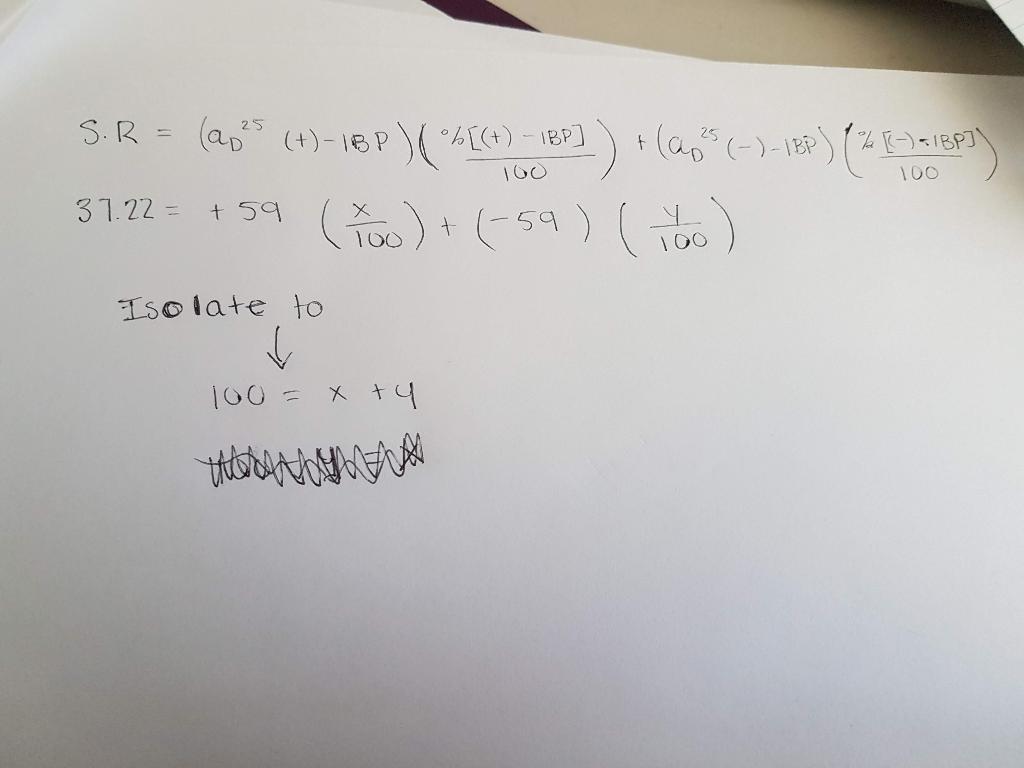 S.R = (aD²⁵ (+)-IBP)(%[(+)-IBP]/100) + (aD²⁵ (-)-IBP)(%[(-)-IBP]/100)
37.22 = +59 (x/100) + (-59) (y/100)
Isolate to
↓
100 = x + y